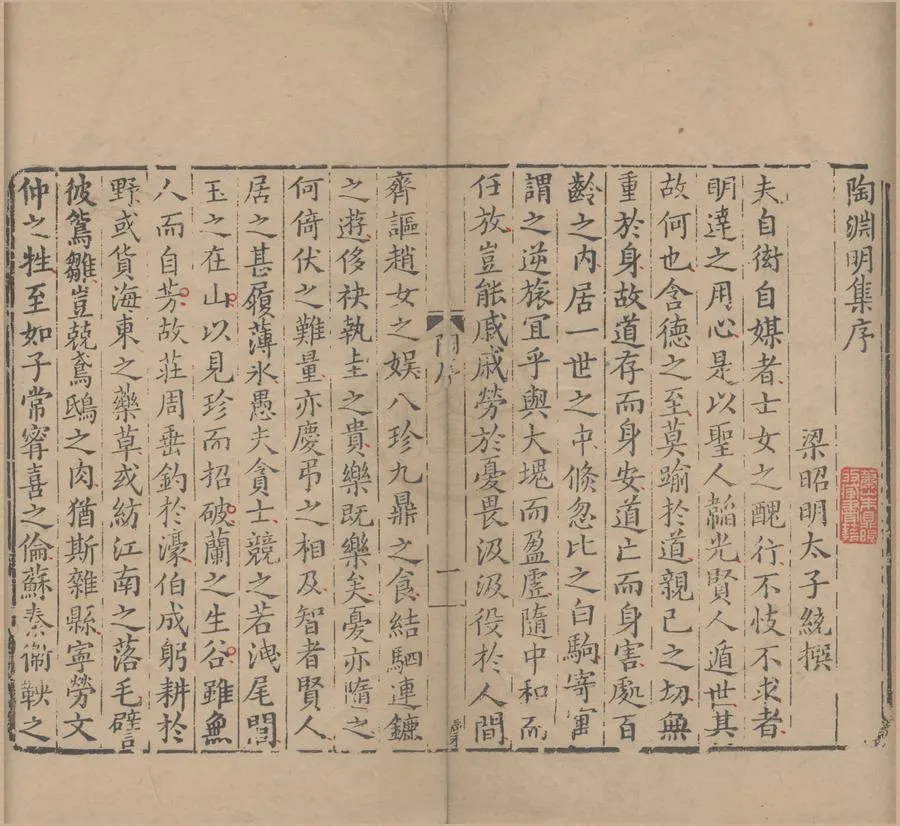 陶淵明集序
梁昭明太子統撰
夫自衒自媒者士女之醜行不忮不求者
明達之用心是以聖人韜光賢人遁世其
故何也含德之至莫踰於道親己之切無
重於身故道存而身安道亡而身害處百
齡之內居一世之中倐忽比之白駒寄寓
謂之逆旅冝乎與大塊而盈虛隨中和而
任放豈能戚戚勞於憂畏汲汲役於人間
二
齊謳趙女之娛八珍九鼎之食結駟連鑣
之遊侈袂執圭之貴樂既樂矣憂亦隨之
何倚伏之難量亦慶弔之相及智者賢人
居之甚履薄氷愚夫貪士競之若洩尾閭
玉之在山以見珍而招破蘭之生谷雖無
人而自芳故莊周垂釣於濠伯成躬耕於
野或貨海東之藥草或紡江南之落毛譬
彼鴛雛豈兢鳶鴟之肉猶斯雜縣寧勞文
仲之牲至如子常甯喜之倫蘇秦衞鞅之